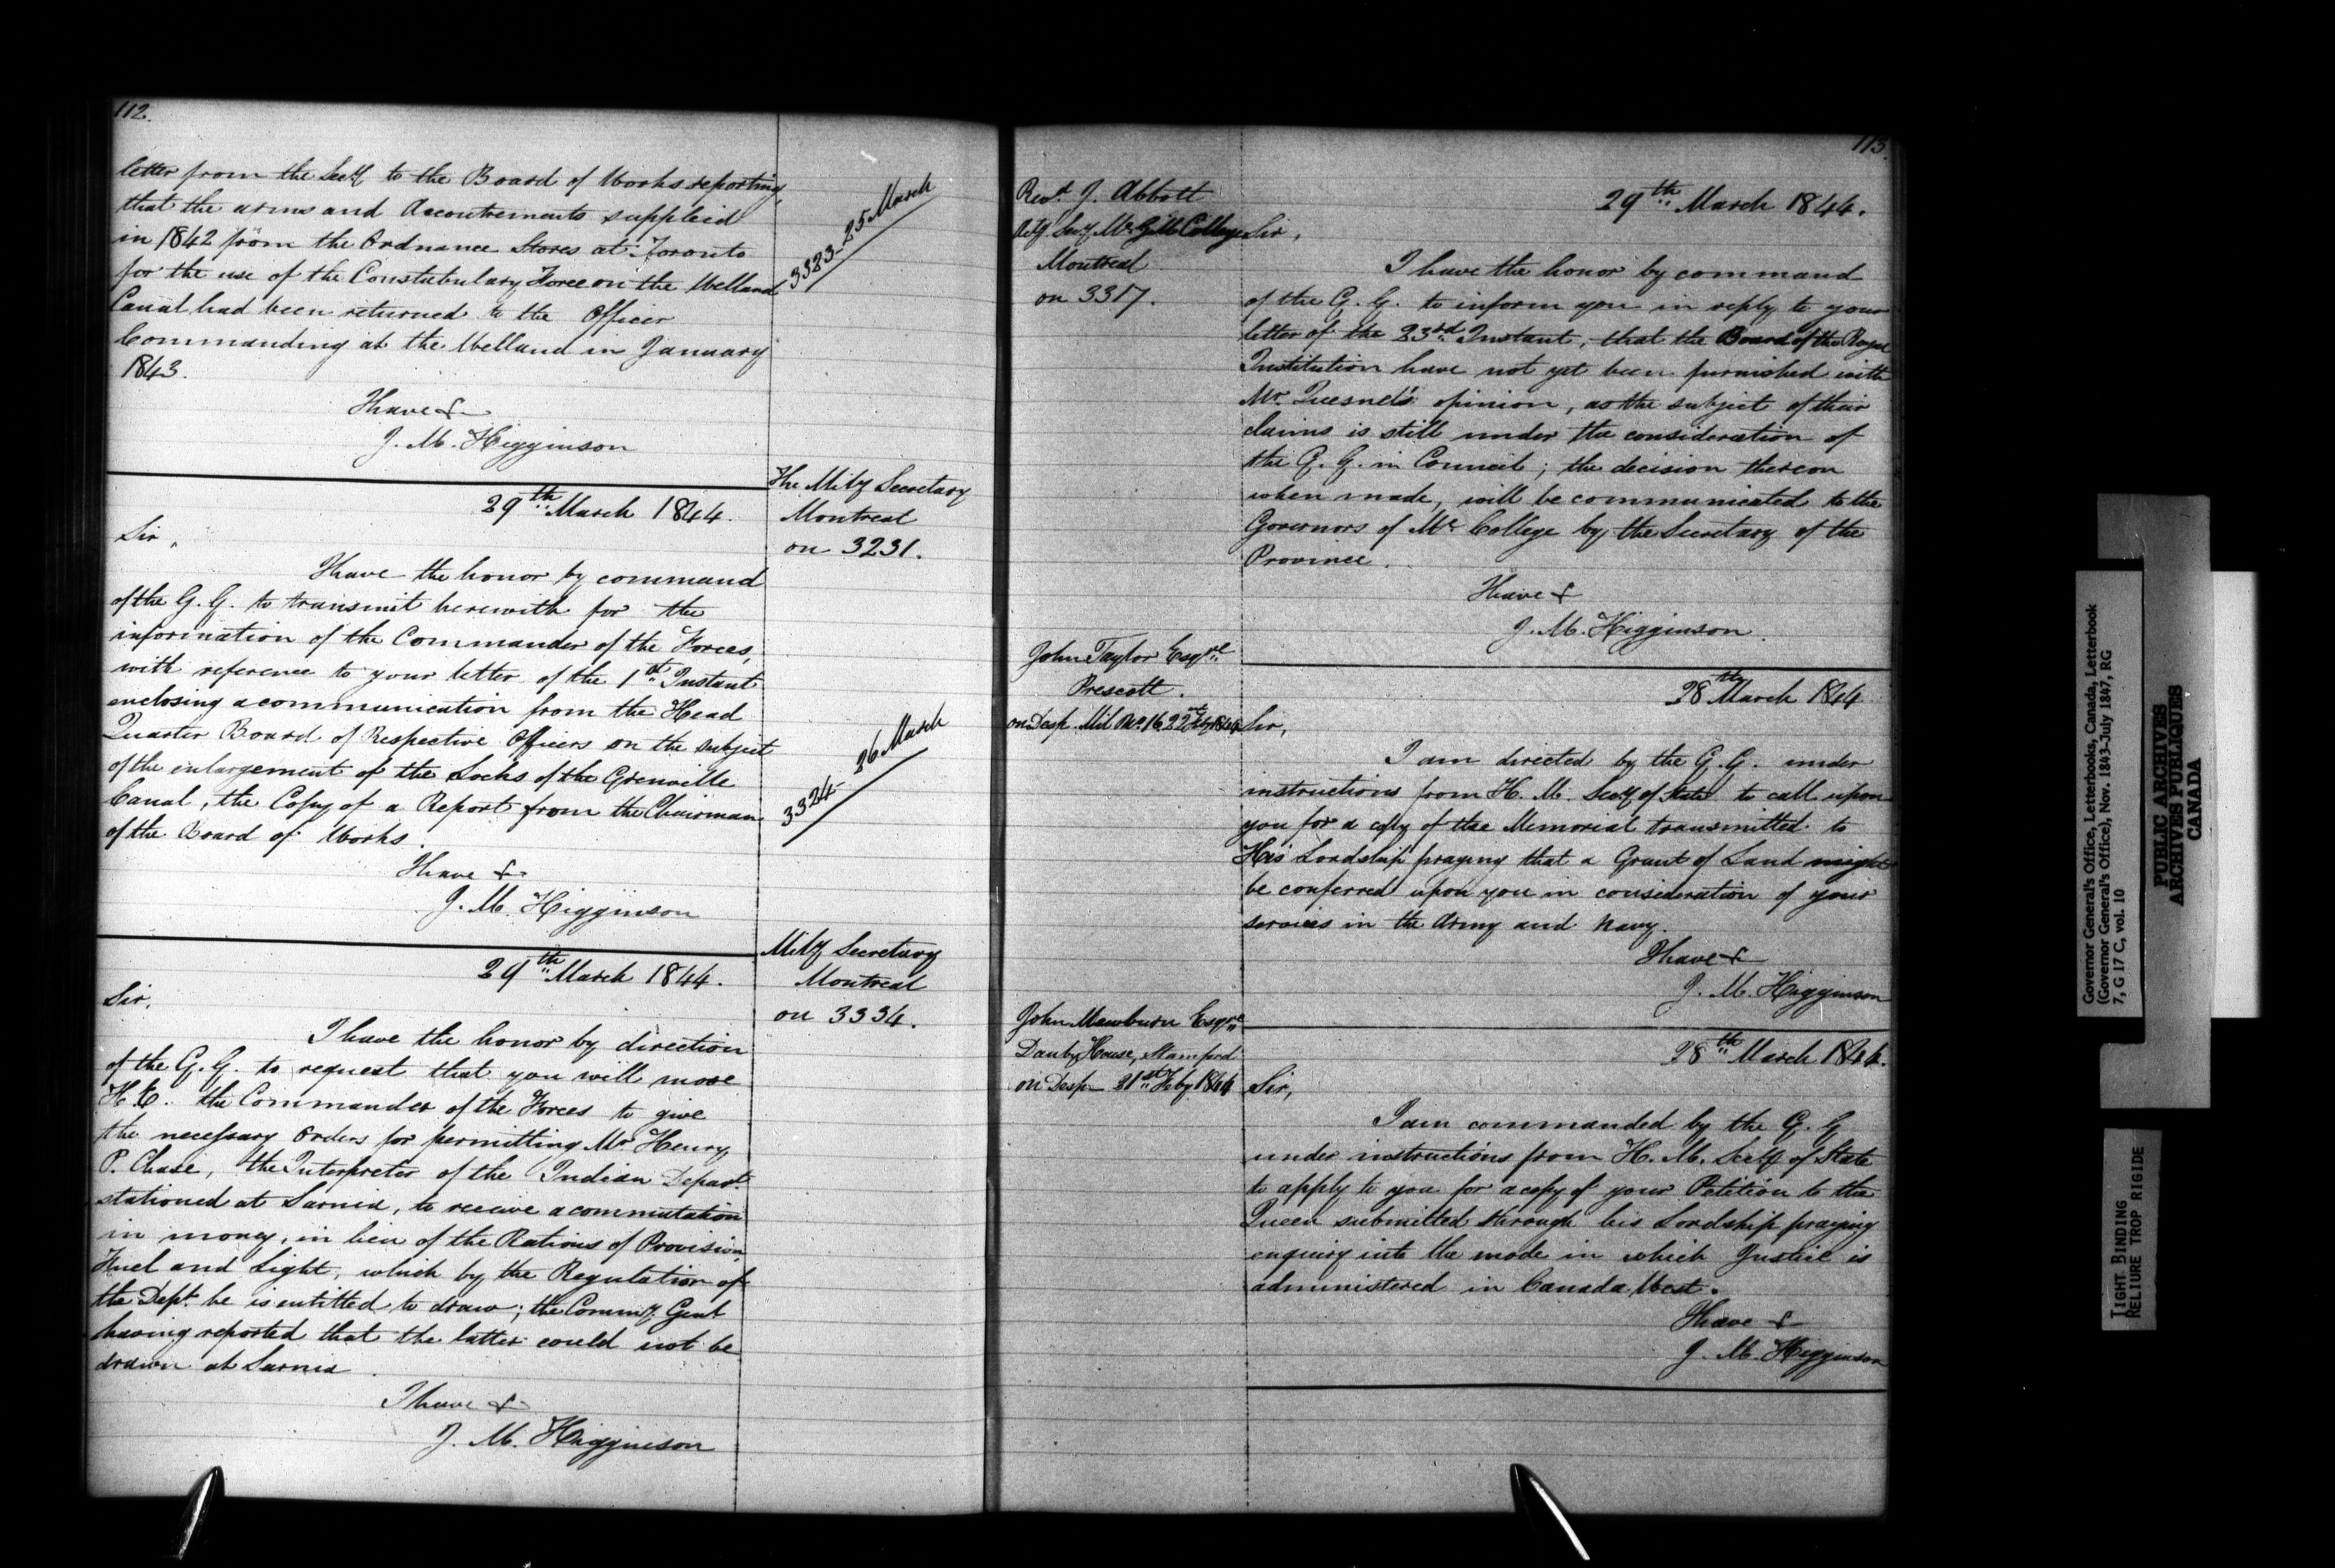 112.
letter from the Secy to the Board of Works reporting,
that the arms and Accoutrements supplied
in 1842 from the Ordnance Stores at Toronto
for the use of the Constabulary Force on the Welland
Canal had been returned to the Officer
Commanding at the Welland in January
1843.
I have &c
J. M. Higginson
3323 25 March
The Mily Secretary
Montreal
on 3231.
29th March 1844.
Sir,
I have the honor by command
of the G. G. to transmit herewith for the
information of the Commander of the Forces,
with reference to your letter of the 1st Instant
enclosing a communication from the Head
Quarter Board of Respective Officers on the subject
of the enlargement of the Locks of the Grenville
Canal, the Copy of a Report from the Chairman
of the Board of Works.
I have &c
J. M. Higginson
3324 26 March
Mily Secretary
Montreal
on 3334.
29th March 1844.
Sir,
I have the honor by direction
of the G. G. to request that you will move
H. E. the Commander of the Forces to give
the necessary Orders for permitting Mr Henry
P. Chase, the Interpreter of the Indian Depart.
stationed at Sarnia, to receive a commutation
in money, in lieu of the Rations of Provision,
Fuel and Light, which by the Regulation of
the Dept. he is entitled to draw; the Commy Genl
having reported that the latter could not be
drawn at Sarnia.
I have &c
J. M. Higginson
113.
Revd. J. Abbott
Actg. Secy Mc Gill College
Montreal
on 3317.
29th March 1844.
Sir,
I have the honor by command
of the G. G. to inform you in reply to your
letter of the 23rd Instant, that the Board of the Royal
Institution have not yet been furnished with
Mr. Quesnel's opinion, as the subject of their
claims is still under the consideration of
the G. G. in Council; the decision thereon
when made, will be communicated to the
Governors of Mc College by the Secretary of the
Province.
I have &
J. M. Higginson.
John Taylor Esqre
Prescott.
on Desp. Mil No. 16 22nd Feby 1844
28th March 1844
Sir,
I am directed by the G. G. under
instructions from H. M. Secy of State to call upon
you for a copy of the Memorial transmitted to
His Lordship praying that a Grant of Land might
be conferred upon you in consideration of your
services in the Army and Navy.
I have &
J. M. Higginson
John Mewburn Esqre
Danby House, Stamford
on Desp 21st Feby 1844
28th March 1844.
Sir,
I am commanded by the G. G
under instructions from H. M. Secy of State
to apply to you for a copy of your Petition to the
Queen submitted through his Lordship praying
enquiry into the mode in which Justice is
administered in Canada West.
I have &
J. M. Higginson
Governor General's Office, Letterbooks, Canada, Letterbook
(Governor General's Office), Nov. 1843-July 1847, RG
7, G 17 C, vol. 10
PUBLIC ARCHIVES
ARCHIVES PUBLIQUES
CANADA
TIGHT BINDING
RELIURE TROP RIGIDE